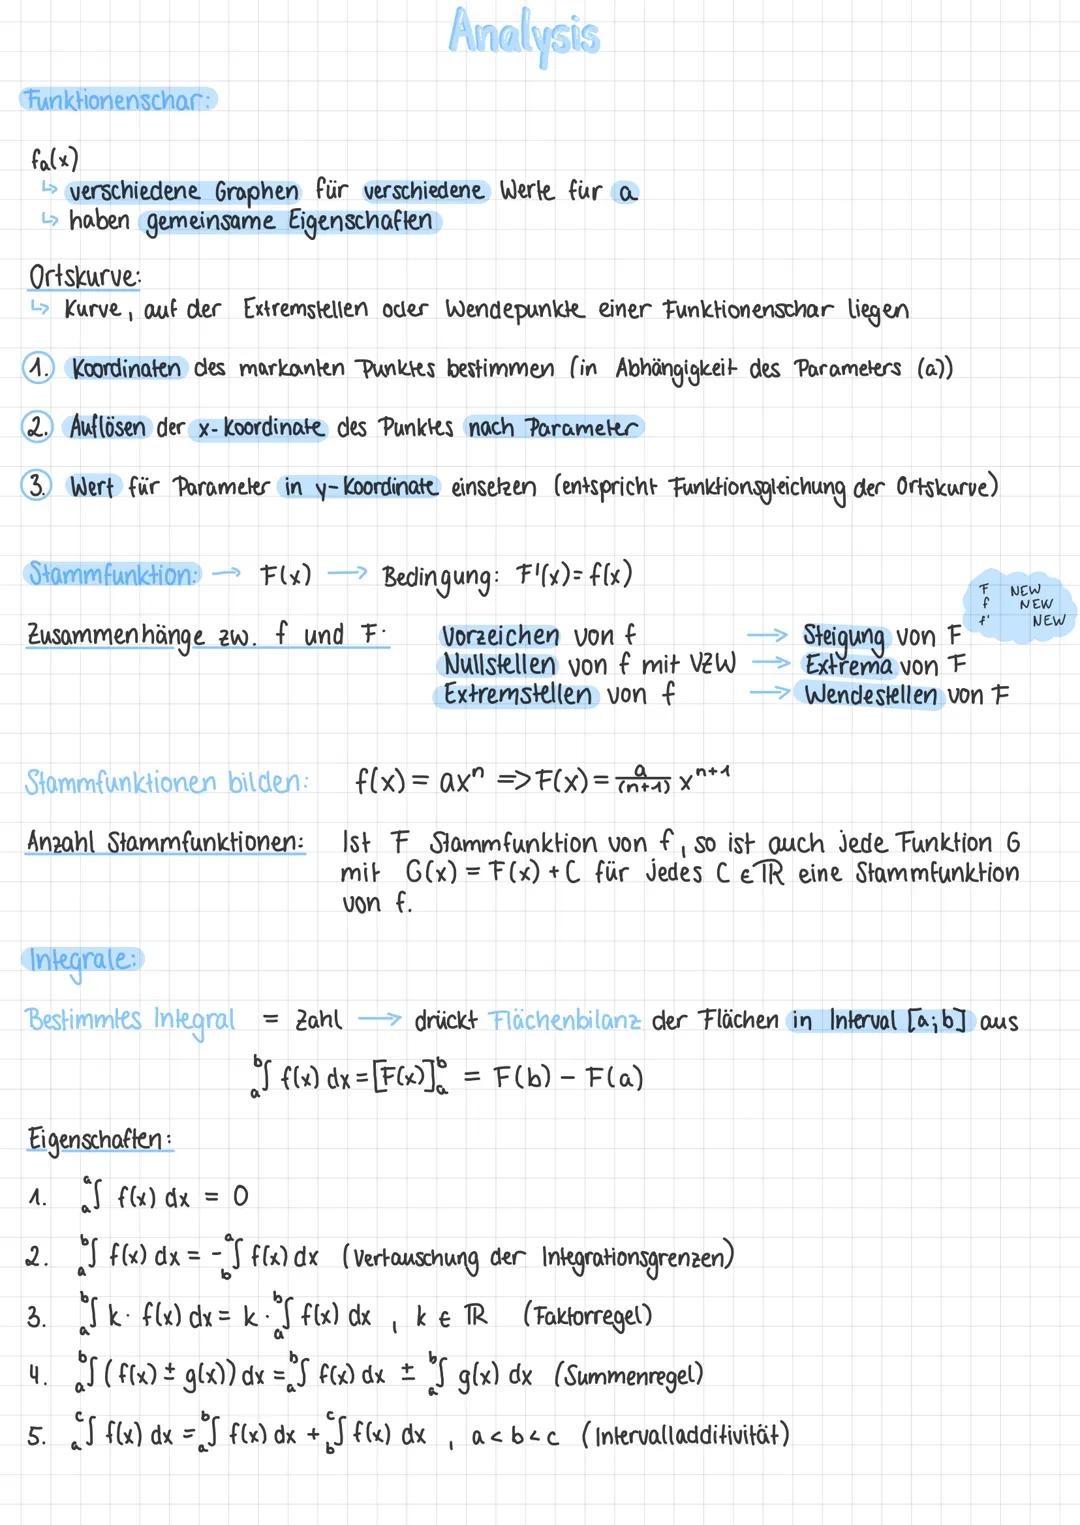 Analysis
Funktionenschar:
fa(x)
↳ verschiedene Graphen für verschiedene Werte für a
↳ haben gemeinsame Eigenschaften
Ortskurve:
↳ Kurve, auf der Extremstellen oder Wendepunkte einer Funktionenschar liegen
1. Koordinaten des markanten Punktes bestimmen (in Abhängigkeit des Parameters (a))
2. Auflösen der x-Koordinate des Punktes nach Parameter
3. Wert für Parameter in y-Koordinate einsetzen (entspricht Funktionsgleichung der Ortskurve)
Stammfunktion: → F(x) → Bedingung: F'(x) = f(x)
F NEW
f NEW
f' NEW
Zusammenhänge zw. f und F: Vorzeichen von f → Steigung von F
Nullstellen von f mit VZW → Extrema von F
Extremstellen von f → Wendestellen von F
Stammfunktionen bilden: f(x) = axⁿ => F(x) = a/(n+1) xⁿ⁺¹
Anzahl Stammfunktionen: Ist F Stammfunktion von f, so ist auch jede Funktion G
mit G(x) = F(x) + C für jedes C ∈ ℝ eine Stammfunktion
von f.
Integrale:
Bestimmtes Integral = Zahl → drückt Flächenbilanz der Flächen in Interval [a;b] aus
ₐᵇ∫ f(x) dx = [F(x)]ₐᵇ = F(b) - F(a)
Eigenschaften:
1. ₐᵃ∫ f(x) dx = 0
2. ₐᵇ∫ f(x) dx = - b^a∫ f(x) dx (Vertauschung der Integrationsgrenzen)
3. ₐᵇ∫ k · f(x) dx = k · ₐᵇ∫ f(x) dx , k ∈ ℝ (Faktorregel)
4. ₐᵇ∫ (f(x) ± g(x)) dx = ₐᵇ∫ f(x) dx ± ₐᵇ∫ g(x) dx (Summenregel)
5. ₐᶜ∫ f(x) dx = ₐᵇ∫ f(x) dx + b^c∫ f(x) dx , a < b < c (Intervalladditivität)